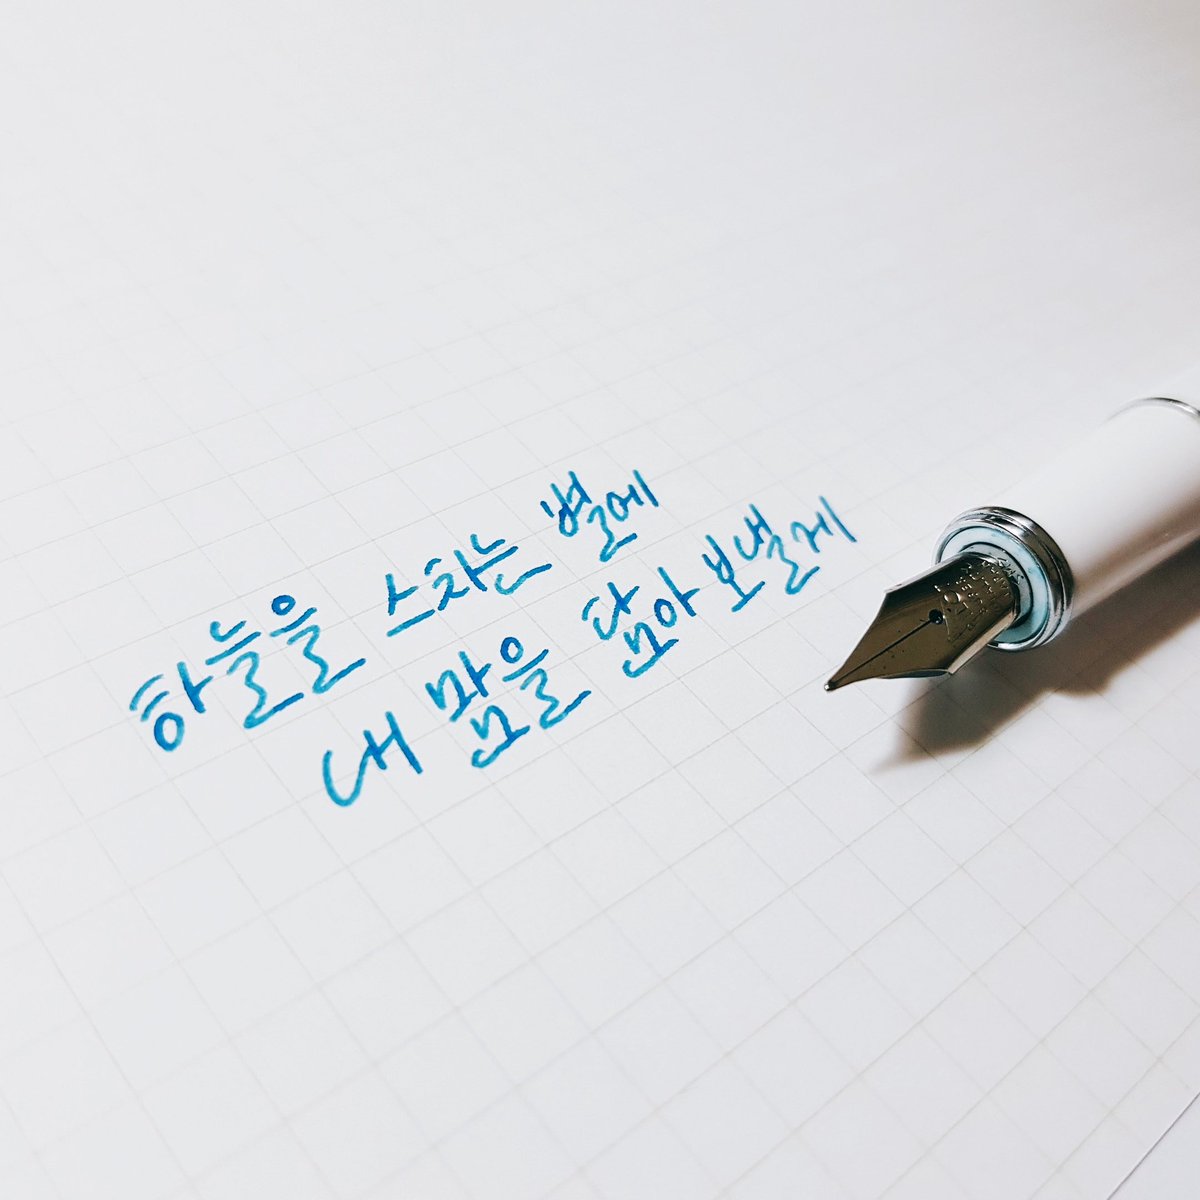 하늘을 스치는 별에
내 맘을 담아 보낼게